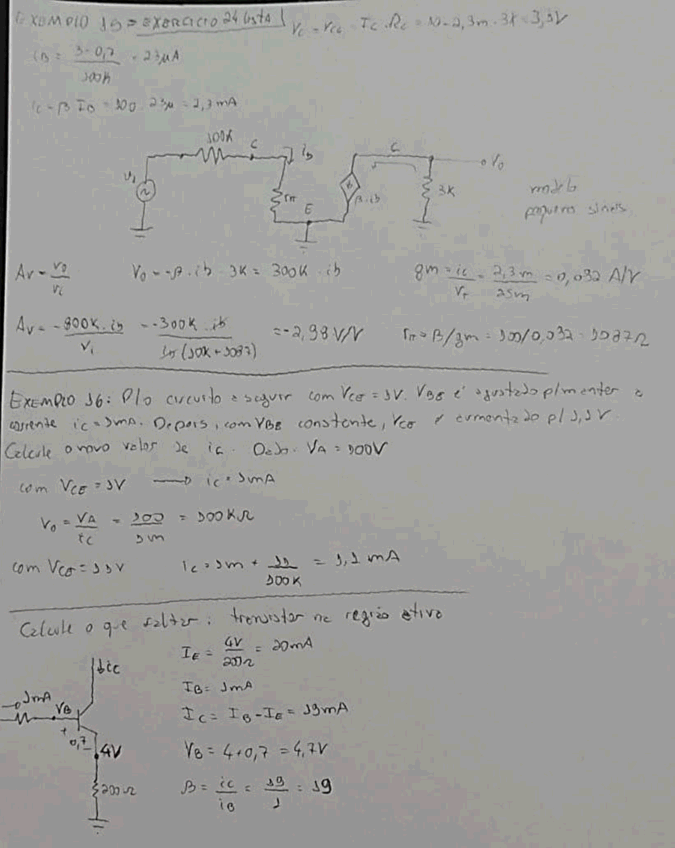 EXEMPLO 15 = EXERCÍCIO 24 LISTA 1 Vc = Vcc - Ic . Rc = 10 - 2,3m . 3K = 3,1V
iB = 3-0,7 / 100K = 23µA
ic = β IB = 100 . 23µ = 2,3mA
100K C ib C Vo
Vi rπ E β.ib 3K modelo
pequenos sinais
Av = Vo / Vi Vo = -β . ib . 3K = 300K . ib gm = ic / VT = 2,3m / 25m = 0,092 A/V
Av = -300K . ib / Vi = -300K . ib / ib (100K + 1087) = -2,98 V/V rπ = β/gm = 100/0,092 = 1087Ω
EXEMPLO 16: P/o circuito a seguir com VCE = 1V. VBE é ajustado p/ manter a
corrente ic = 1mA. Depois, com VBE constante, VCE é aumentado p/ 11V.
Calcule o novo valor de ic. Dado: VA = 100V
com VCE = 1V → ic = 1mA
Vo = VA / ic = 100 / 1m = 100KΩ
com VCE = 11V ic = 1m + 11 / 100K = 1,1 mA
Calcule o que faltar: transistor na região ativa
IE = 4V / 200Ω = 20mA
↓ic
IB = 1mA
1mA VB IC = IB - IE = 19mA
+ 0,7 - 4V VB = 4+0,7 = 4,7V
200Ω β = ic / iB = 19 / 1 = 19